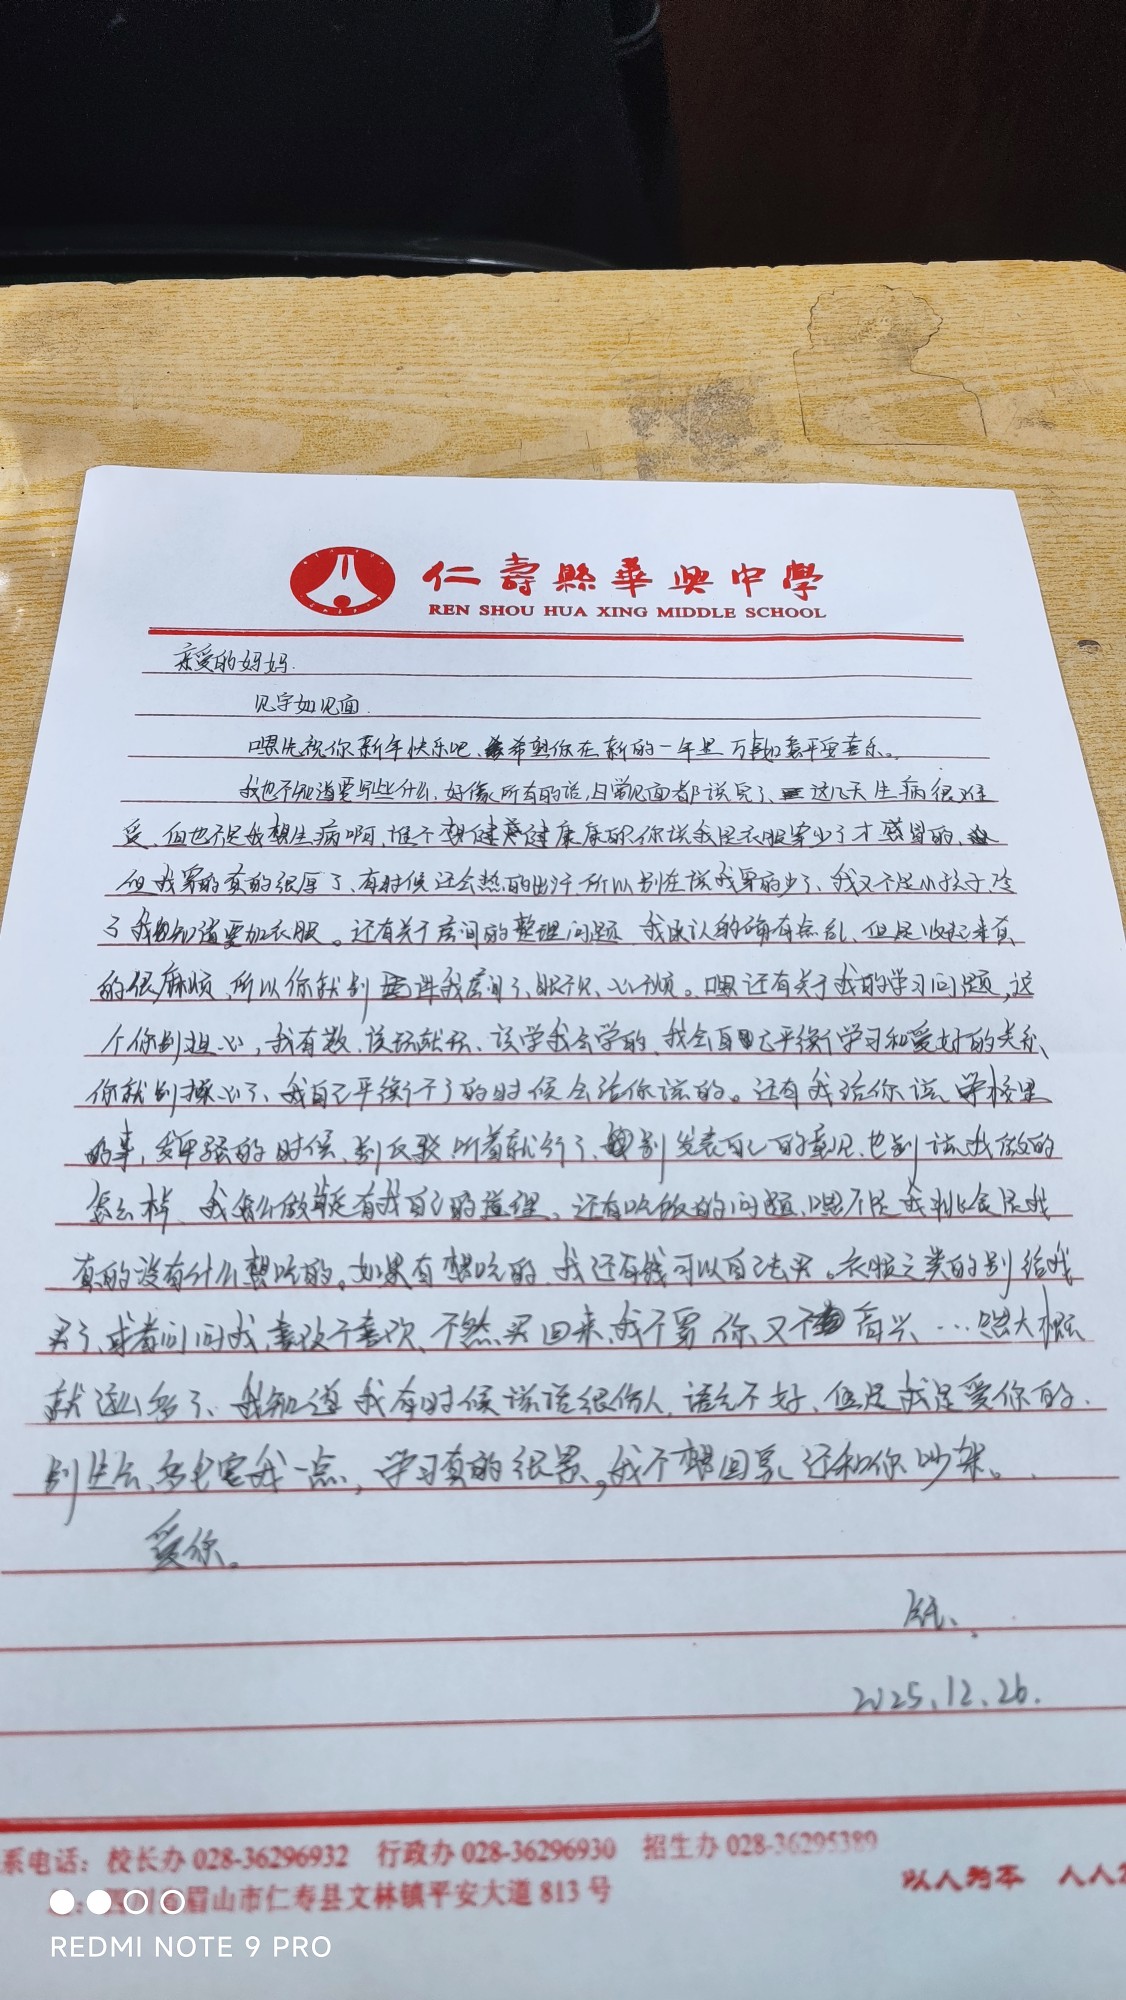 仁壽縣華興中學
REN SHOU HUA XING MIDDLE SCHOOL
亲爱的妈妈.
见字如见面.
嗯先祝你新年快乐吧,希望你在新的一年里万事如意平安喜乐。
我也不知道要写些什么,好像所有的话,日常见面都说完了、这几天生病很难
受,但也不是我想生病啊,谁不想健健康康的你说我是衣服穿少了才感冒的、
但我穿的真的很厚了、有时候还会热的出汗、所以别在说我穿的少了、我又不是小孩子,冷
了我自己知道要加衣服。还有关于房间的整理问题 我承认的确有点乱,但是收起来真
的很麻烦、所以你就别进我房间了、眼不见、心不烦。嗯还有关于我的学习问题,这
个你别担心,我有数、该玩就玩、该学我会学的、我会自己平衡学习和爱好的关系、
你就别操心了、我自己平衡不了的时候会给你说的。还有我给你说学校里
的事,我牢骚的时候、别反驳、听着就行了、别发表自己的意见、也别说我做的
怎么样、我怎么做都是有我自己的道理、还有吃饭的问题、嗯不是我挑食是我
真的没有什么想吃的。如果有想吃的、我还有钱可以自己去买。衣服之类的别给我
买了、或者问问我,喜没不喜欢、不然买回来、我不穿你又不高兴…嗯大概
就这么多了、我知道我有时候说话很伤人、语气不好、但是我是爱你的.
别生气、多包容我一点,学习真的很累,我不想回家还和你吵架。
爱你。
2025.12.26.
系电话：校长办 028-36296932 行政办 028-36296930 招生办 028-36295389
眉山市仁寿县文林镇平安大道 813 号
以人为本 人人
REDMI NOTE 9 PRO